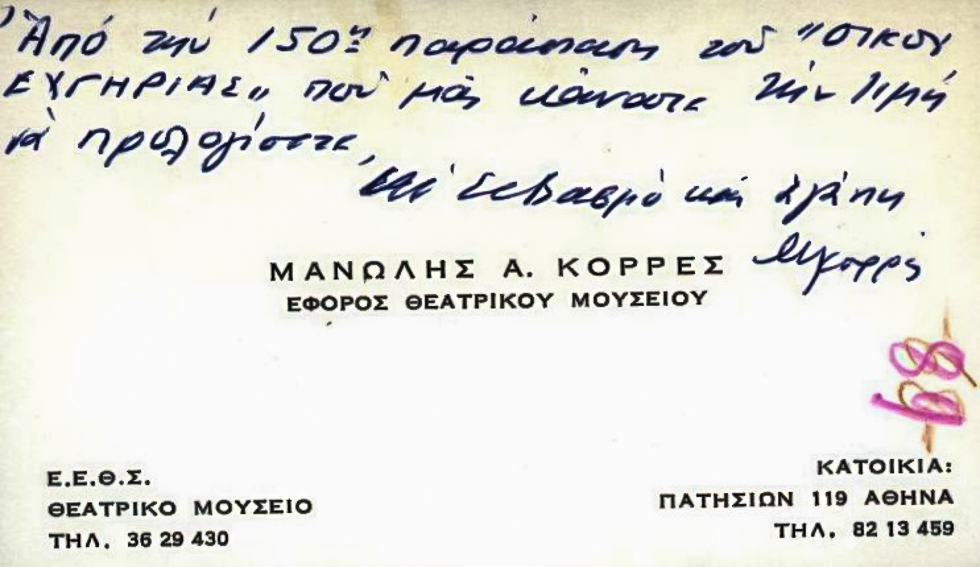 Ἀπό τήν 150ην παράσταση τοῦ "ΟΙΚΟΥ
ΕΥΓΗΡΙΑΣ„ πού μᾶς κάνατε τήν τιμή
νά προλογίσετε,
Μέ σεβασμό καί ἀγάπη
ΜΚορρές
ΜΑΝΩΛΗΣ Α. ΚΟΡΡΕΣ
ΕΦΟΡΟΣ ΘΕΑΤΡΙΚΟΥ ΜΟΥΣΕΙΟΥ
Ε.Ε.Θ.Σ.
ΘΕΑΤΡΙΚΟ ΜΟΥΣΕΙΟ
ΤΗΛ. 36 29 430
ΚΑΤΟΙΚΙΑ:
ΠΑΤΗΣΙΩΝ 119 ΑΘΗΝΑ
ΤΗΛ. 82 13 459